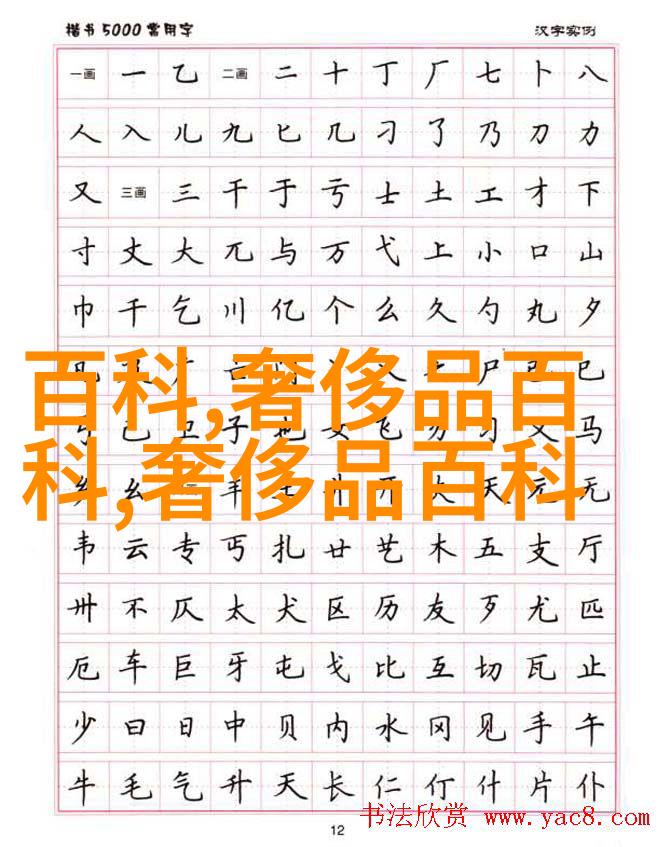 楷书5000常用字 汉字实例
一画 一 乙 二画 二 十 丁 厂 七 卜 八
人 入 儿 九 匕 几 刁 了 乃 刀 力
又 三画 三 干 于 亏 士 土 工 才 下
寸 丈 大 兀 与 万 弋 上 小 口 山
巾 千 乞 川 亿 个 么 久 勺 丸 夕
百科,奢侈品百
尸 巳
子 飞 习 马
科,奢侈品百科
乡 幺 天 无
韦 云 专 丐 扎 廿 艺 木 五 支 厅
卅 不 仄 太 犬 区 历 友 歹 尤 匹
厄 车 巨 牙 屯 戈 比 互 切 瓦 止
少 曰 日 中 贝 内 水 冈 见 手 午
牛 毛 气 升 夭 长 仁 仃 什 片 仆
书法欣赏 www.yac8.com
12